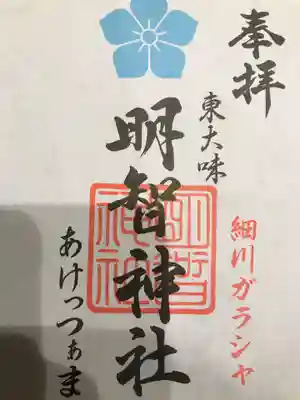 奉拝
東大味
細川ガラシャ
明智神社
あけっつぁま
明智神社